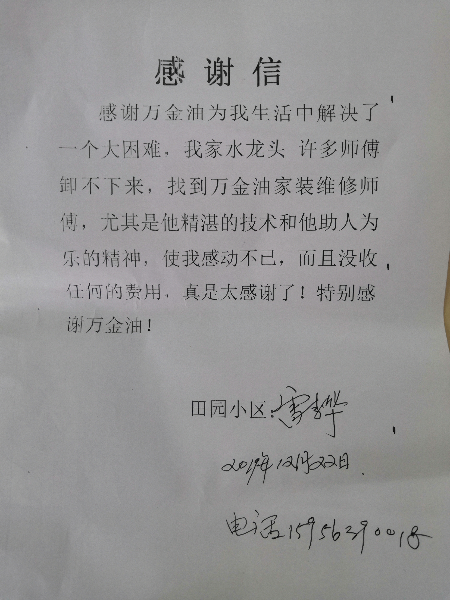 感谢信
感谢万金油为我生活中解决了
一个大困难，我家水龙头 许多师傅
卸不下来，找到万金油家装维修师
傅，尤其是他精湛的技术和他助人为
乐的精神，使我感动不已，而且没收
任何的费用，真是太感谢了！特别感
谢万金油！
田园小区：雷
2019年12月22日
电话